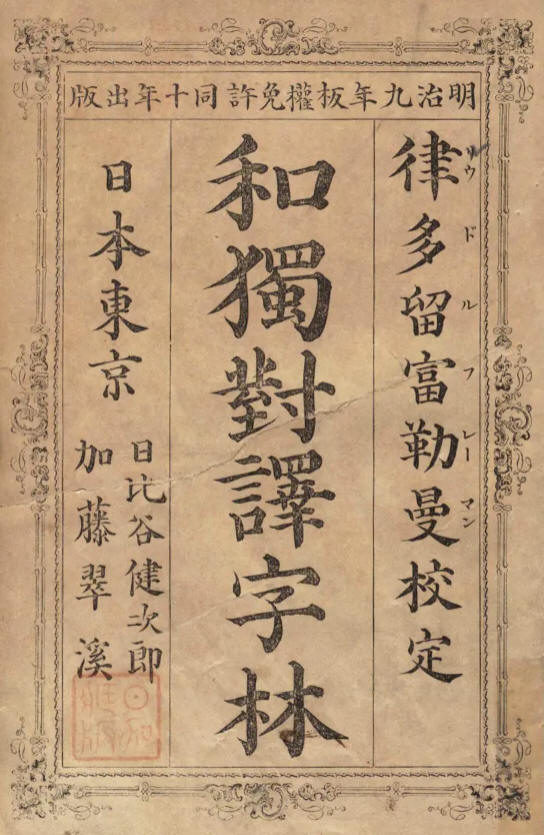 明治九年板權免許同十年出版
律多留富勒曼校定
リウドルフレーマン
和獨對譯字林
日本東京
日比谷健次郎
加藤翠溪